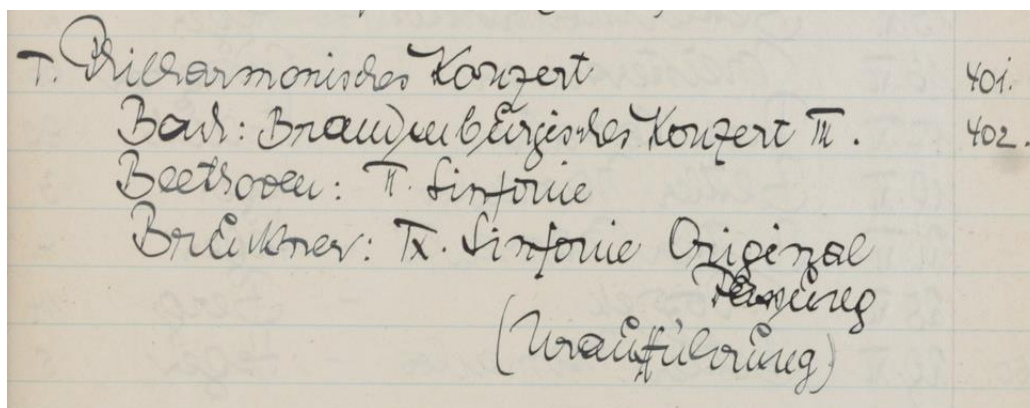 I. Philharmonisches Konzert 401.
Bach: Brandenburgisches Konzert III. 402.
Beethoven: II. Sinfonie
Bruckner: IX. Sinfonie Original
Fassung
(Uraufführung)